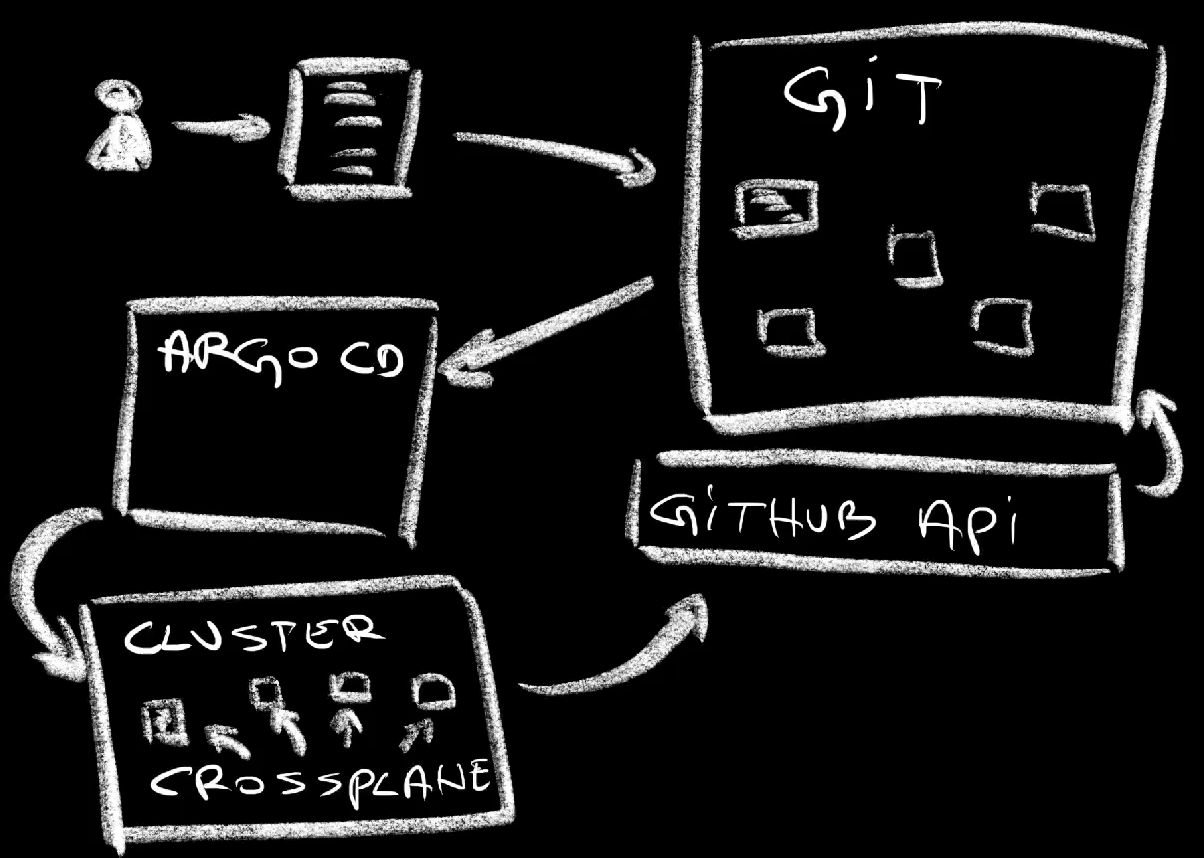 GiT
ARGO CD
GiTHUB APi
CLUSTER
CROSSPLANE